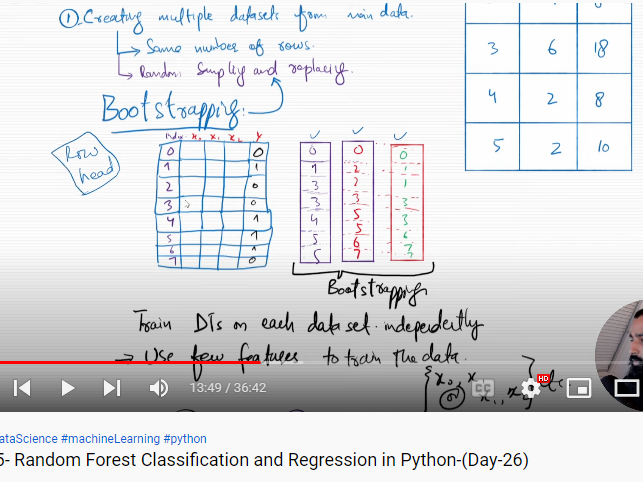 ① Creating multiple datasets from main data.
→ Same number of rows.
→ Random Sampling and replacing.
Bootstrapping:
Row head
Index X₀ X₁ X₂ Y
0 0
1 1
2 0
3 0
4 1
5 1
6 1
7 0
0 0 0
1 2 1
3 2 1
3 3 3
4 5 3
5 5 6
5 6 7
7
3 6 18
4 2 8
5 2 10
Bootstrapping
Train DTs on each dataset independently
→ Use few features to train the data.
13:49 / 36:42
CC
HD
ataScience #machineLearning #python
5- Random Forest Classification and Regression in Python-(Day-26)